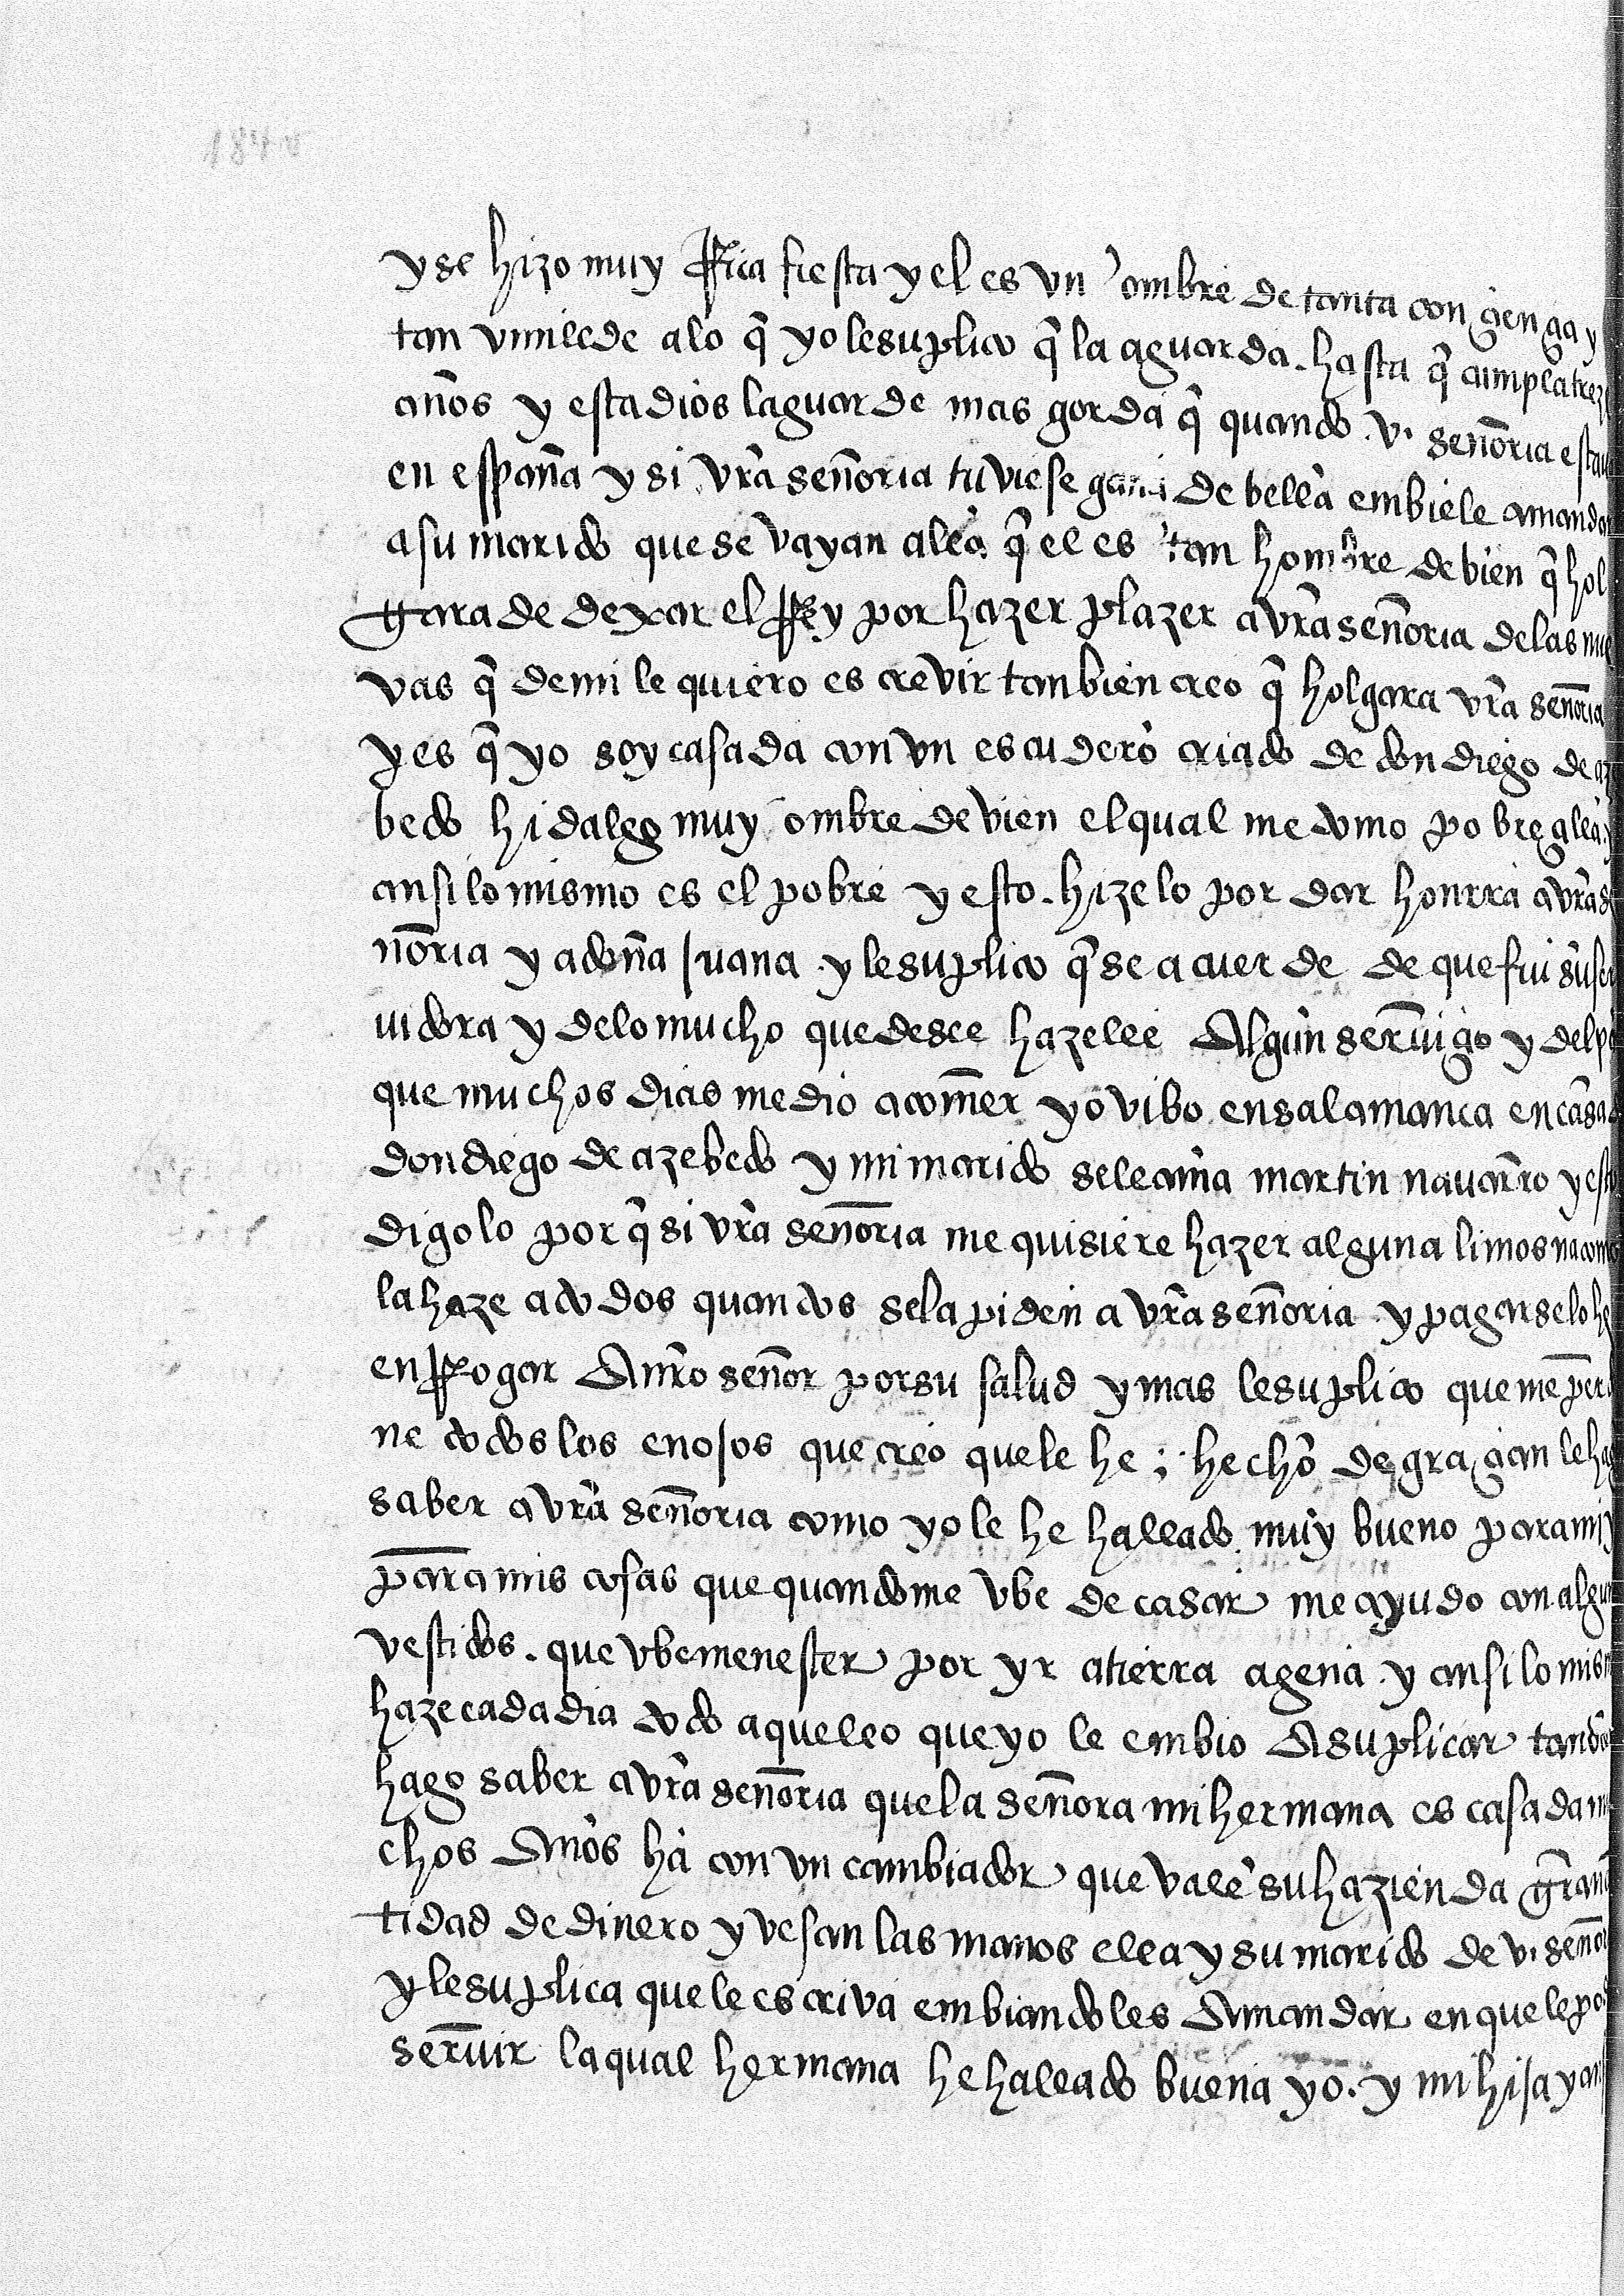 y se hizo muy Rica fiesta y el es vn ombre de tanta conçiençia y
tan vmillde a lo q̃ yo le suplico q̃ la aguarda hasta q̃ cumpla trez
años y esta dios la guarde mas gorda q̃ quando v. señoria estau
en espana y si vr̃a señoria tuviese gana de bella embiele a mandar
a su marido que se vayan alla q̃ el es tan hombre de bien q̃ hol
gara de dexar el Rey por hazer plazer a vr̃a señoria de las nue
vas q̃ de mi le quiero escrevir tanbien creo q̃ holgara vr̃a señoria
y es q̃ yo soy casada con vn escudero criado de don diego de az
bedo hidalgo muy ombre de vien el qual me tomo pobre alla y
ansi lo mismo es el pobre y esto hizelo por dar honrra a vr̃a se
ñoria y a doña Juana y le suplico q̃ se acuerde de que fui su ser
uidora y de lo mucho que desee hazelle Algun seruiçio y del p
que muchos dias me dio a comer yo vibo en salamanca en casa d
don diego de azebedo y mi marido se llama martin nauarro y esto
digolo por q̃ si vr̃a señoria me quisiere hazer alguna limosna como
la haze a todos quantos se la piden a vr̃a señoria y pagarselo he
en Rogar A nr̃o señor por su salud y mas le suplico que me per
ne todos los enojos que creo que le he hecho de graçian le hag
saber a vr̃a señoria como yo le he hallado muy bueno para mi y
para mis cosas que quando me vbe de casar me ayudo con algun
vestidos que vbe menester por yr a tierra agena y ansi lo mism
haze cada dia todo aquello que yo le embio A suplicar tanbien
hago saber a vr̃a señoria que la señora mi hermana es casada mu
chos Años ha con vn cambiador que vale su hazienda gran
tidad de dinero y vesan las manos ella y su marido de v. señor
y le suplica que le escriva embiandoles A mandar en que le pod
seruir la qual hermana he hallado buena yo y mi hija y ans